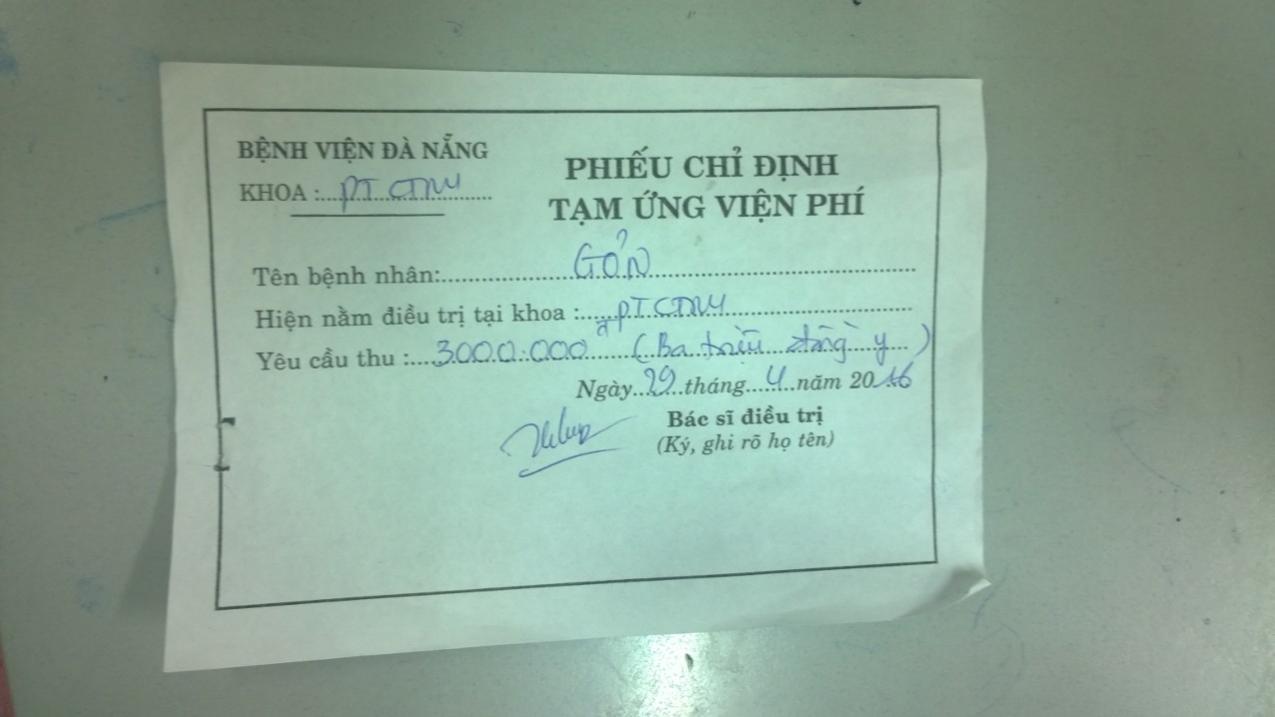 BỆNH VIỆN ĐÀ NẴNG
KHOA :....PT CTNM..........
PHIẾU CHỈ ĐỊNH
TẠM ỨNG VIỆN PHÍ
Tên bệnh nhân:..................GỞN..................
Hiện nằm điều trị tại khoa :......PT CTNM..................
Yêu cầu thu :....3000.000đ (Ba triệu đồng y)
Ngày...29...tháng....4....năm 2016
Bác sĩ điều trị
(Ký, ghi rõ họ tên)